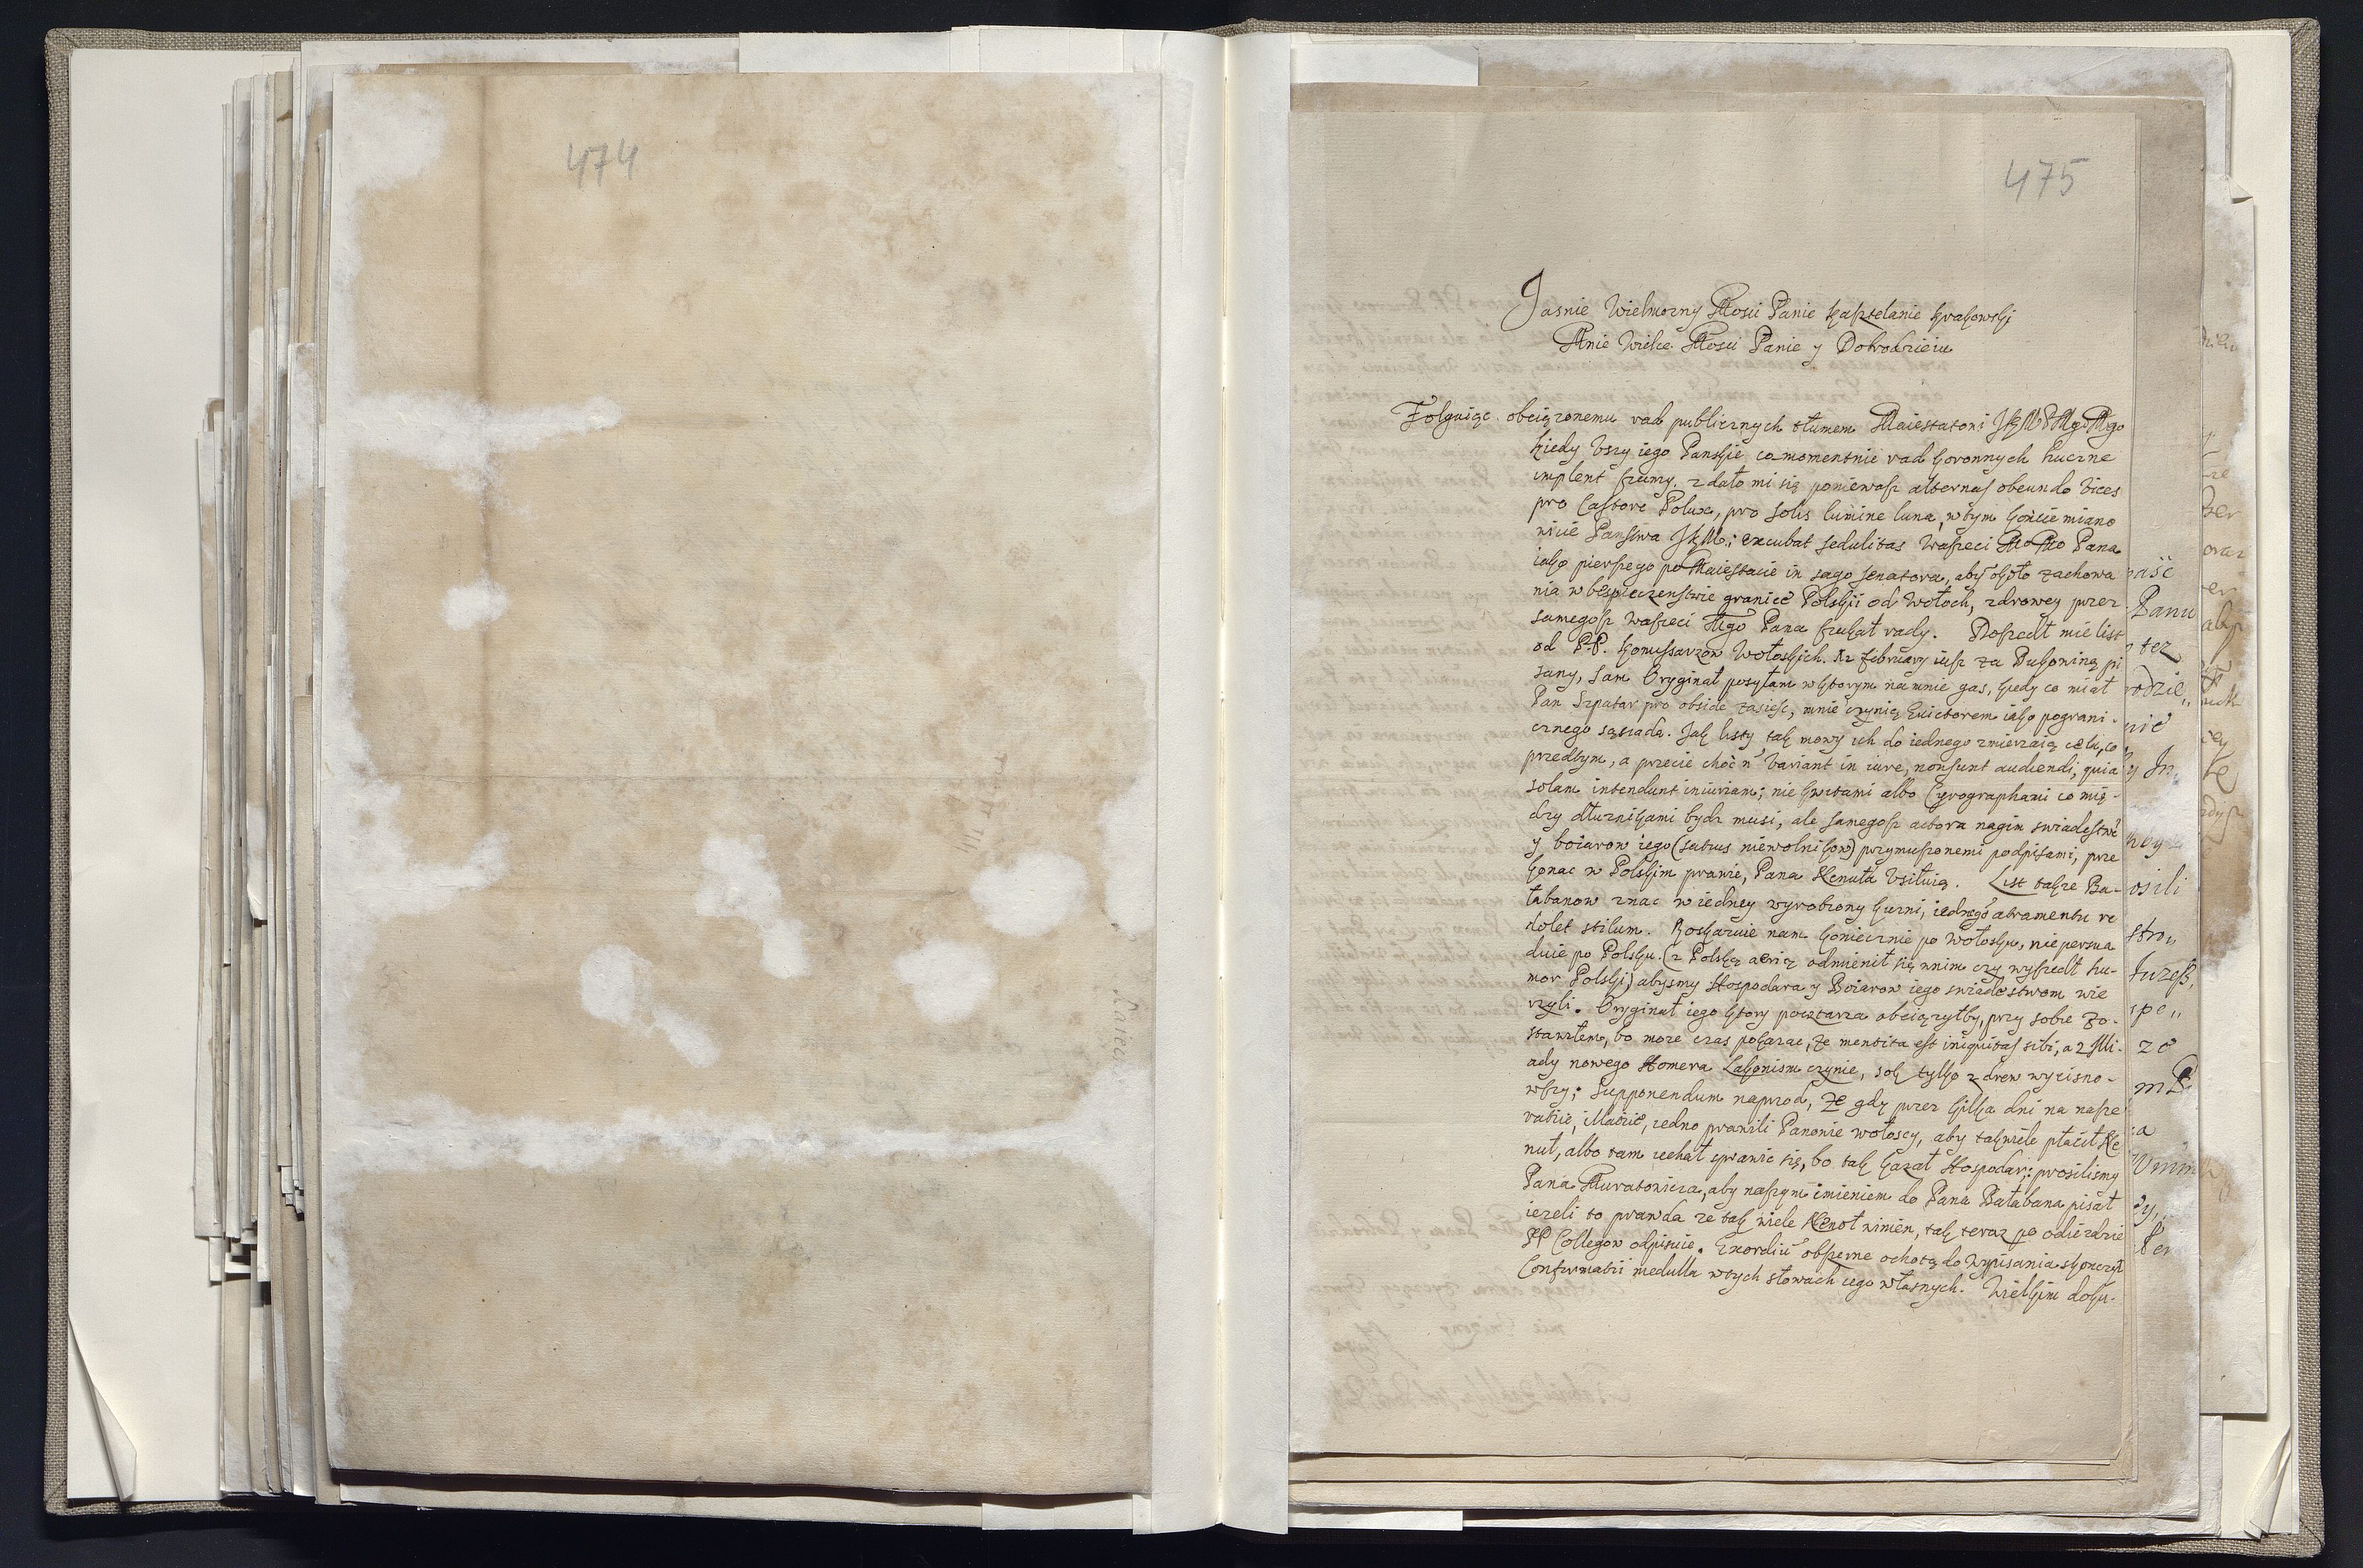 474
475
Jasnie Wielmozny Mosci Panie Kasztelanie Krakowski
Mnie Wielce Mosci Panie y Dobrodzieiu
Folguiąc obciązonemu rad publicznych tłumem Maiestatowi JKM PMgo Mgo
kiedy Vszy iego Panskie co momentnie rad koronnych huczne
implent szumy. zdało mi się poniewasz alternas obeundo vices
pro Castore Polux, pro solis lumine luna, w tym kącie miano
wicie Panstwa JKM.: excubat sedulitas Waszeci MoMo Pana
iako pierszego po Maiestacie in sago senatora, aby około zachowa
nia w bespieczenstwie granice Polskii od Wołoch, zdrowey przez
samegosz Waszeci Mgo Pana szukał rady. Doszedł mie list
od PP. Komissarzow Wołoskich. 12 february iusz za Bukowiną pi
sany, sam Oryginał posyłam w ktorym na mnie gas, kiedy co miał
Pan Szpatar pro obside zasieść, mnie czynią Euictorem iako pograni-
cznego sąsiada. Jak listy tak mowy ich do iednego zmierzaią celu, co
przedtym, a przecie choć ń variant in iure, non sunt audiendi, quia
solam intendunt iniuriam; nie kwitami albo Cyrographami co mię-
dzy dłuznikami bydz musi, ale samegosz actora nagim swiadestwē
y boiarow iego (satius niewolnikow) przymuszonemi podpisami, prze
konac w Polskim prawie, Pana Kenuta Vsiłuią. List takze Ba-
łabanow znac w iedney wyrobiony kuzni, iednego atramentu re
dolet stilum. Roskazuie nam koniecznie po Wołosku, nie persua
duie po Polsku. (z Polską aerią odmienił się w nim czy wyszedł hu-
mor Polski) abysmy Hospodara y Boiarow iego swiadestwom wie
rzyli. Oryginał iego ktory pocztarza obciązyłby, przy sobie zo-
stawiłem, bo moze czas pokazac, ze mentita est iniquitas sibi, a z Jlli-
ady nowego Homera Lakonism czynie, sok tylko z drew wycisno-
wszy; Supponendum naprzod, ze gdy przez kilka dni na nasze
racie, iedno prawili Panowie wołoscy, aby tak wiele płacił Ke
nut, albo tam iechał sprawic się, bo tak kazał Hospodar; prosilismy
Pana Muratowicza, aby naszym imieniem do Pana Bałabana pisał
iezeli to prawda ze tak wiele Kenot winien, tak teraz po odiezdzie
PP Collegow odpisuie. Exordiū obszerne ochotą do wypisania skonczył
Confirmatii medulla w tych słowach iego własnych. Wielkim doku-